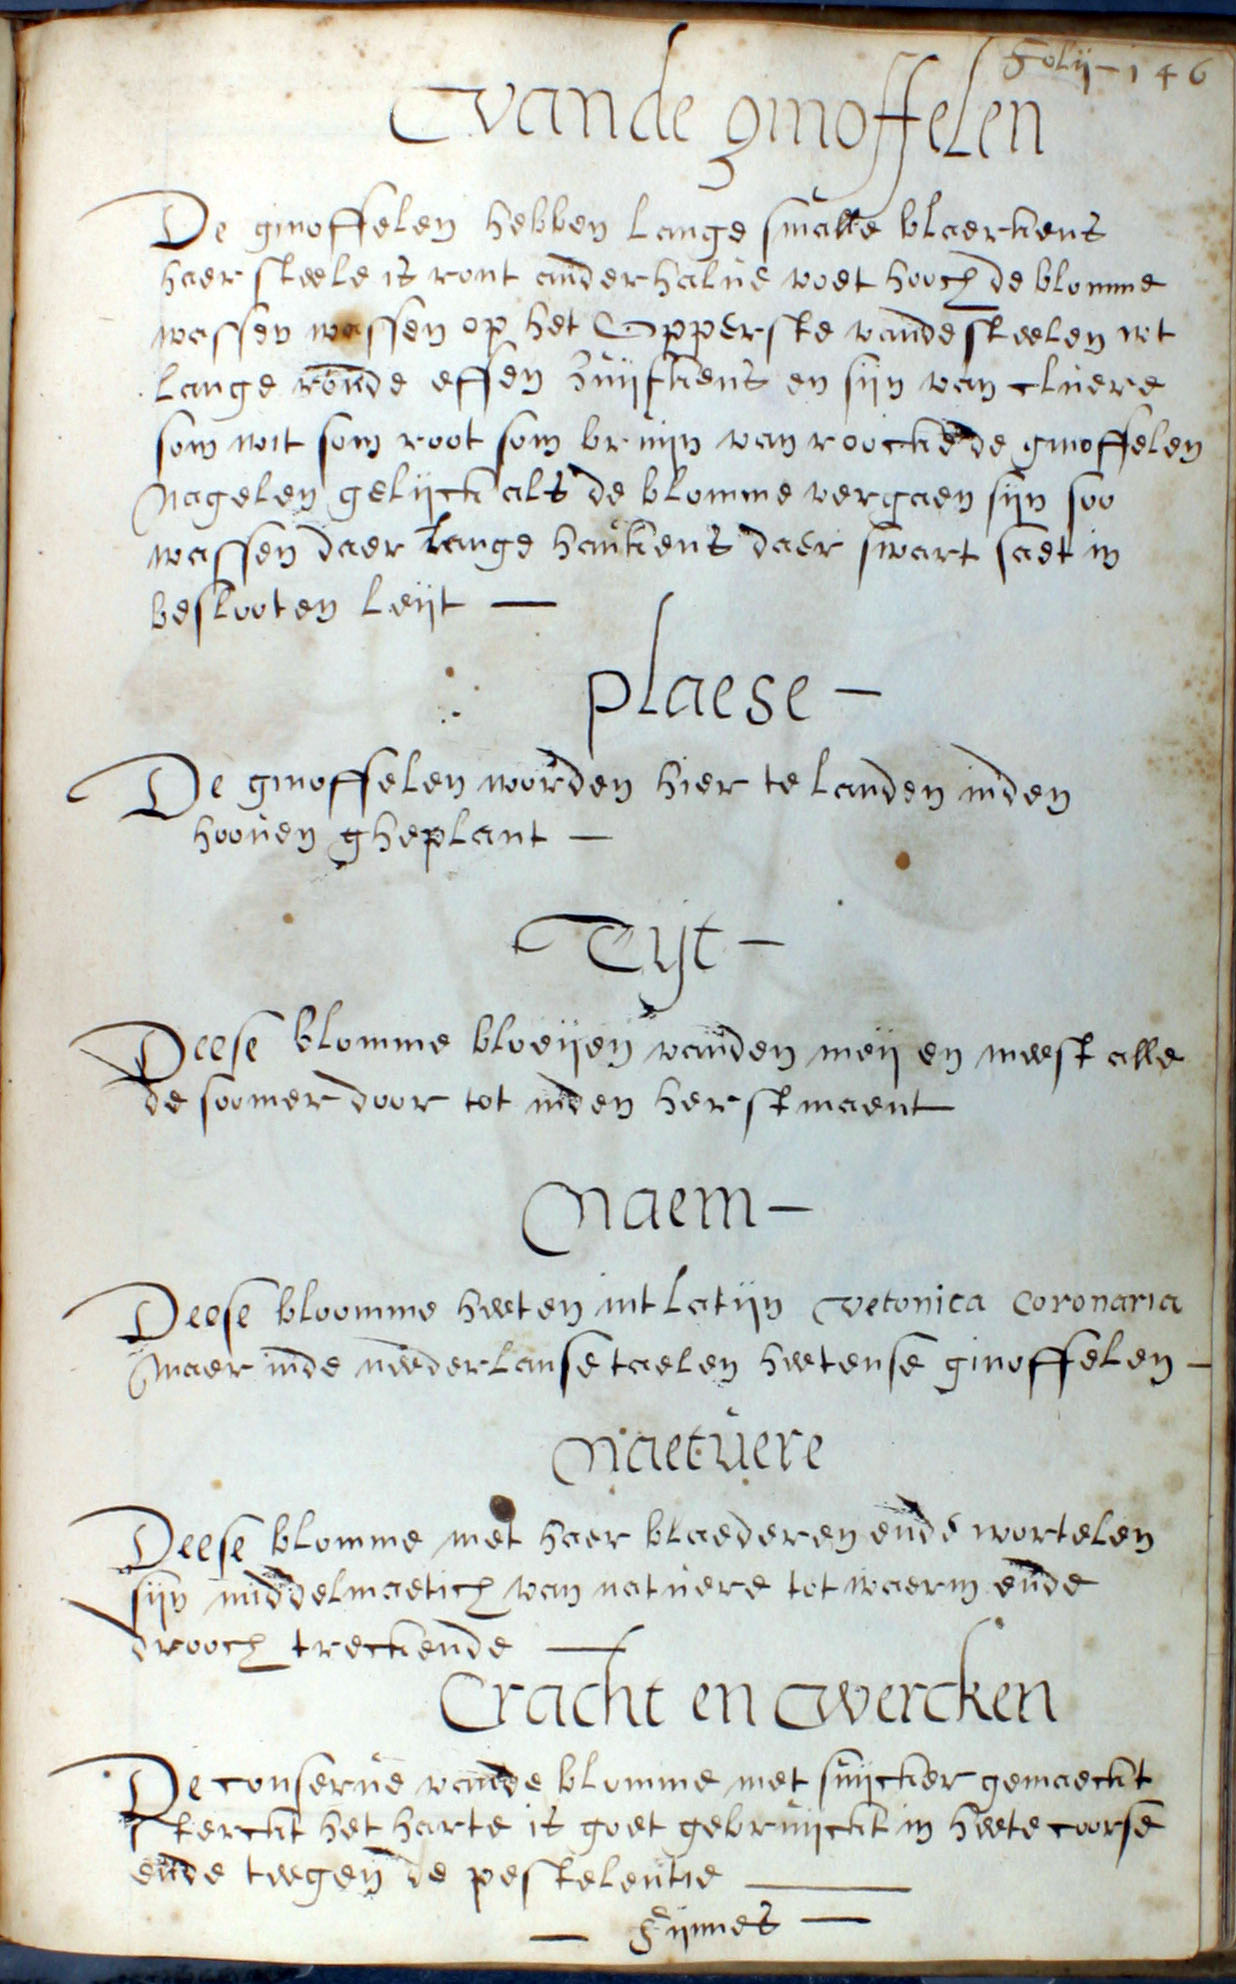 Folij - 146
Vande ginoffelen
De ginoffelen hebben lange smalle blaerkens
haer steele is ront anderhalve voet hooch de blomme
wassen wassen op het opperste vande steelen wt
lange ronde effen huijskens en sijn van cluere
som wit som root som bruijn van roock de ginoffelen
nagelen gelijck als de blomme vergaen sijn soo
wassen daer lange haukens daer swart saet in
beslooten leijt —
plaese —
De ginoffelen worden hier te landen inden
hooven gheplant —
Tijt —
Deese blomme bloeijen vanden meij en meest alle
de soomer door tot inden herstmaent
Naem —
Deese bloomme heeten int latijn vetonica coronaria
maer inde neederlanse taelen heetense ginoffelen —
Naetuere
Deese blomme met haer blaederen ende wortelen
sijn middelmaetich van natuere tot waerm ende
drooch treckende —
Cracht en wercken
De conserve vande blomme met suijcker gemaeckt
sterckt het harte is goet gebruijckt in heete coorse
ende teegen de pestelentie —
— Fijnnes —